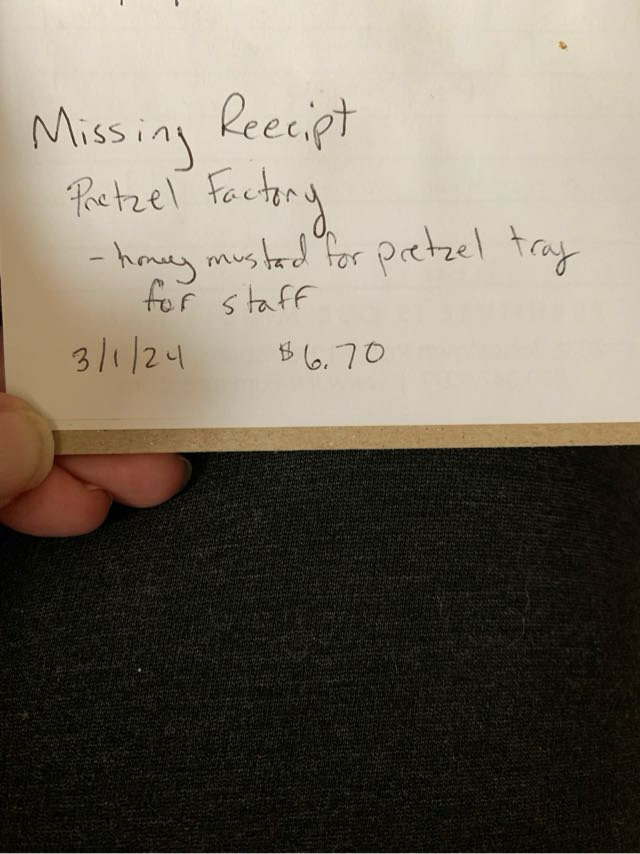 Missing Reecipt
Pretzel Factory
- honey mustard for pretzel tray
for staff
3/1/24 $6.70